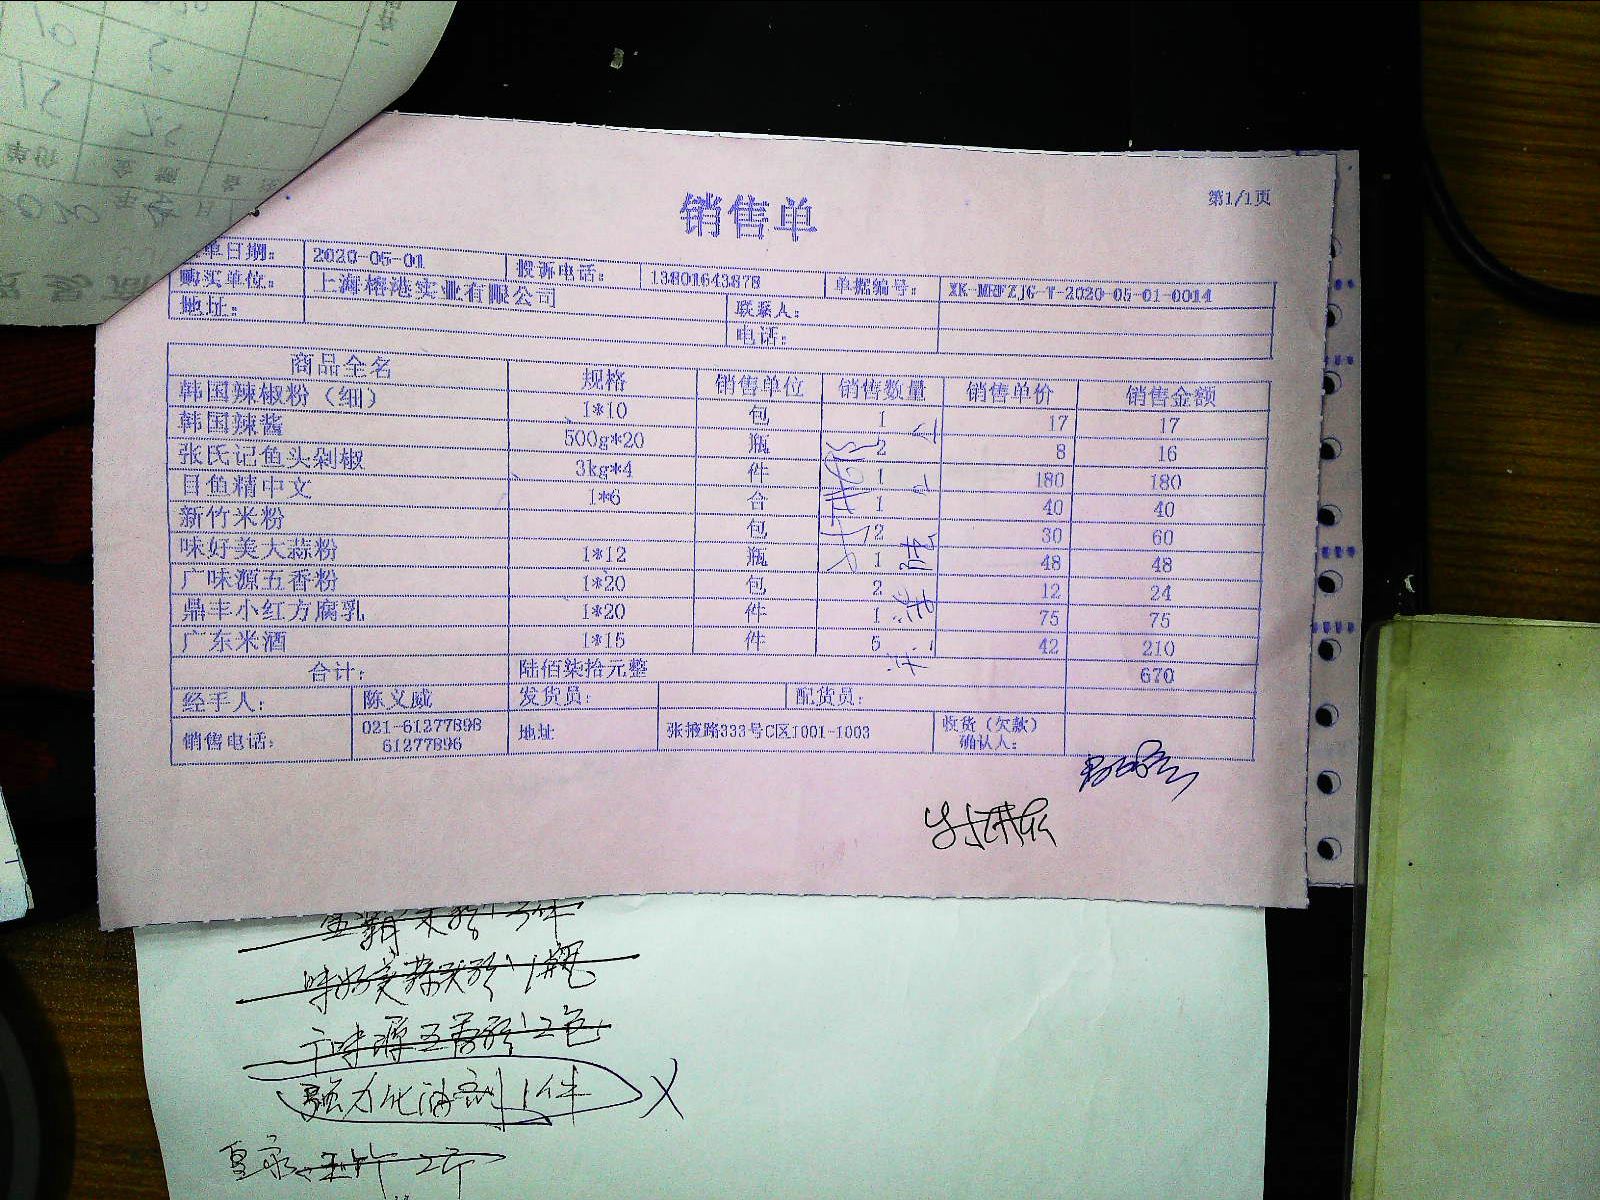 销售单
第1/1页
单日期： 2020-05-01 投诉电话： 13801643878 单据编号： XK-MRFZJG-T-2020-05-01-0014
购买单位： 上海榕港实业有限公司 联系人：
地址： 电话：
商品全名 规格 销售单位 销售数量 销售单价 销售金额
韩国辣椒粉（细） 1*10 包 1 17 17
韩国辣酱 500g*20 瓶 2 8 16
张氏记鱼头剁椒 3kg*4 件 1 180 180
目鱼精中文 1*6 合 1 40 40
新竹米粉 包 2 30 60
味好美大蒜粉 1*12 瓶 1 48 48
广味源五香粉 1*20 包 2 12 24
鼎丰小红方腐乳 1*20 件 1 75 75
广东米酒 1*15 件 5 42 210
合计： 陆佰柒拾元整 670
经手人： 陈义威 发货员： 配货员：
销售电话： 021-61277898 61277896 地址 张掖路333号C区1001-1003 收货（欠款）确认人：
味好美蒜粉 1瓶
广味源五香粉 2包
强力化油剂 1件 X